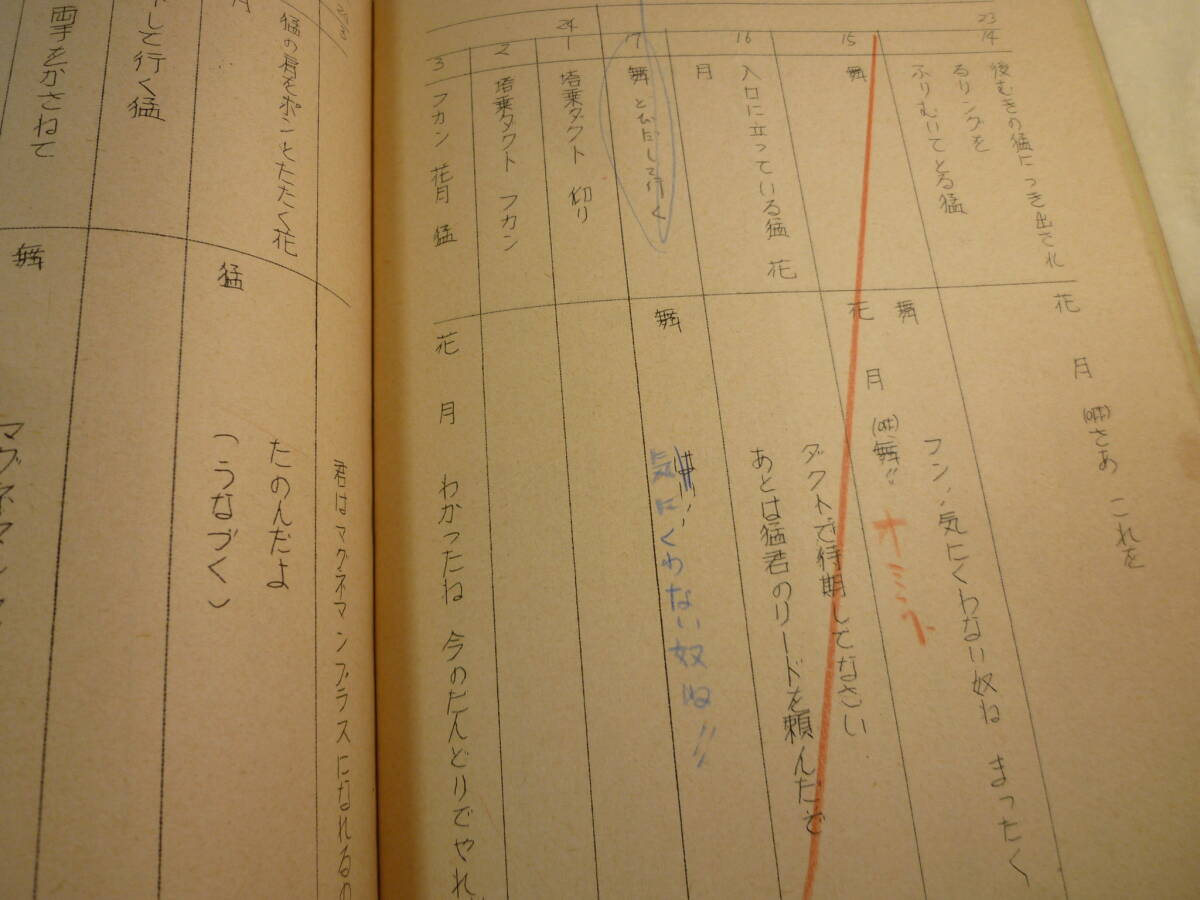 23
14
後むきの猛につき出され
るリングを
ふりむいてとる猛
花
月
(OFF)さあ これを
舞
フン!気にくわない奴ね まったく
15
舞
花
月
(OFF)舞!!
オミット
16
入口に立っている猛 花
月
ダクトで待期してなさい
あとは猛君のリードを頼んだぞ
17
舞 とびだして行く
舞
気にくわない奴ね!!
24
1
塔乗ダクト 仰り
2
塔乗ダクト フカン
3
フカン 花月 猛
花
月
わかったね 今のだんどりでやれ
君はマグネマンプラスになれるの
猛の肩をポンとたたく花
月
猛
たのんだよ
(うなづく)
して行く猛
両手をかさねて
舞